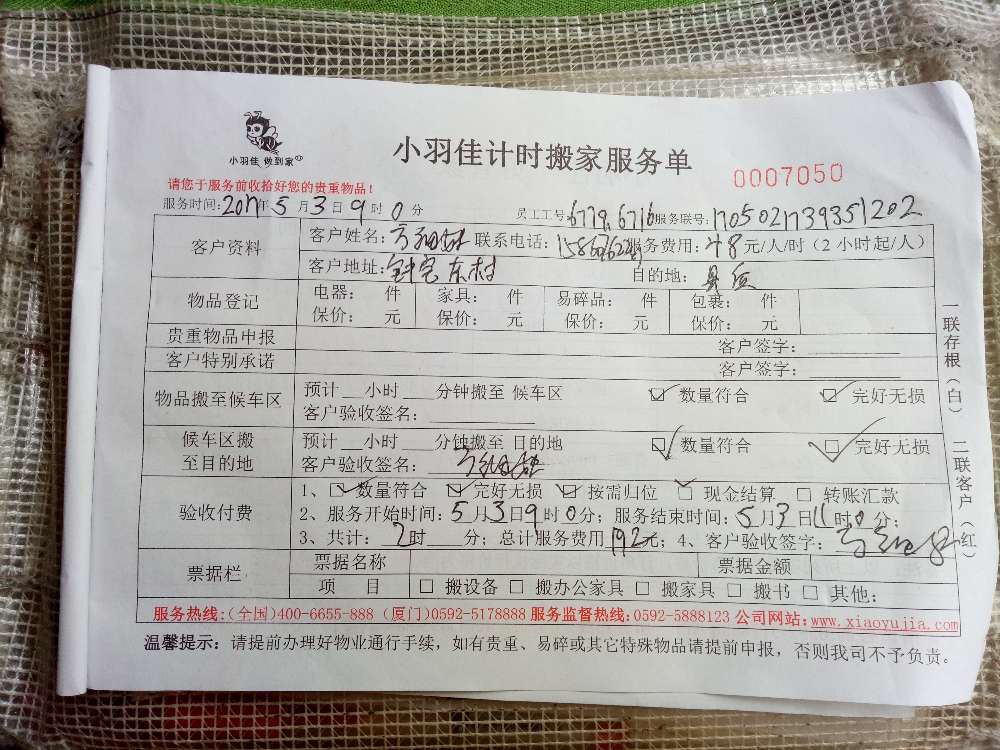 小羽佳 做到家
小羽佳计时搬家服务单
0007050
请您于服务前收拾好您的贵重物品！
服务时间：2017年5月3日9时0分 员工工号：6779，6716 服务联号：1705021739351202
客户资料 客户姓名： 联系电话： 服务费用：48元/人/时（2小时起/人）
客户地址：钟宅东村 目的地：
物品登记 电器： 件 家具： 件 易碎品： 件 包裹： 件
保价： 元 保价： 元 保价： 元 保价： 元
贵重物品申报 客户签字：
客户特别承诺 客户签字：
物品搬至候车区 预计__小时__分钟搬至 候车区 ☑ 数量符合 ☑ 完好无损
客户验收签名：
候车区搬至目的地 预计__小时__分钟搬至 目的地 ☑ 数量符合 ☑ 完好无损
客户验收签名：
验收付费 1、☑ 数量符合 ☑ 完好无损 ☑ 按需归位 ☑ 现金结算 □ 转账汇款
2、服务开始时间：5月3日9时0分；服务结束时间：5月3日11时0分；
3、共计：2时__分；总计服务费用192元；4、客户验收签字：
票据栏 票据名称 票据金额
项 目 □ 搬设备 □ 搬办公家具 □ 搬家具 □ 搬书 □ 其他：
服务热线：(全国)400-6655-888 (厦门)0592-5178888 服务监督热线：0592-5888123 公司网站：www.xiaoyujia.com
温馨提示：请提前办理好物业通行手续，如有贵重、易碎或其它特殊物品请提前申报，否则我司不予负责。
一联存根（白） 二联客户（红）